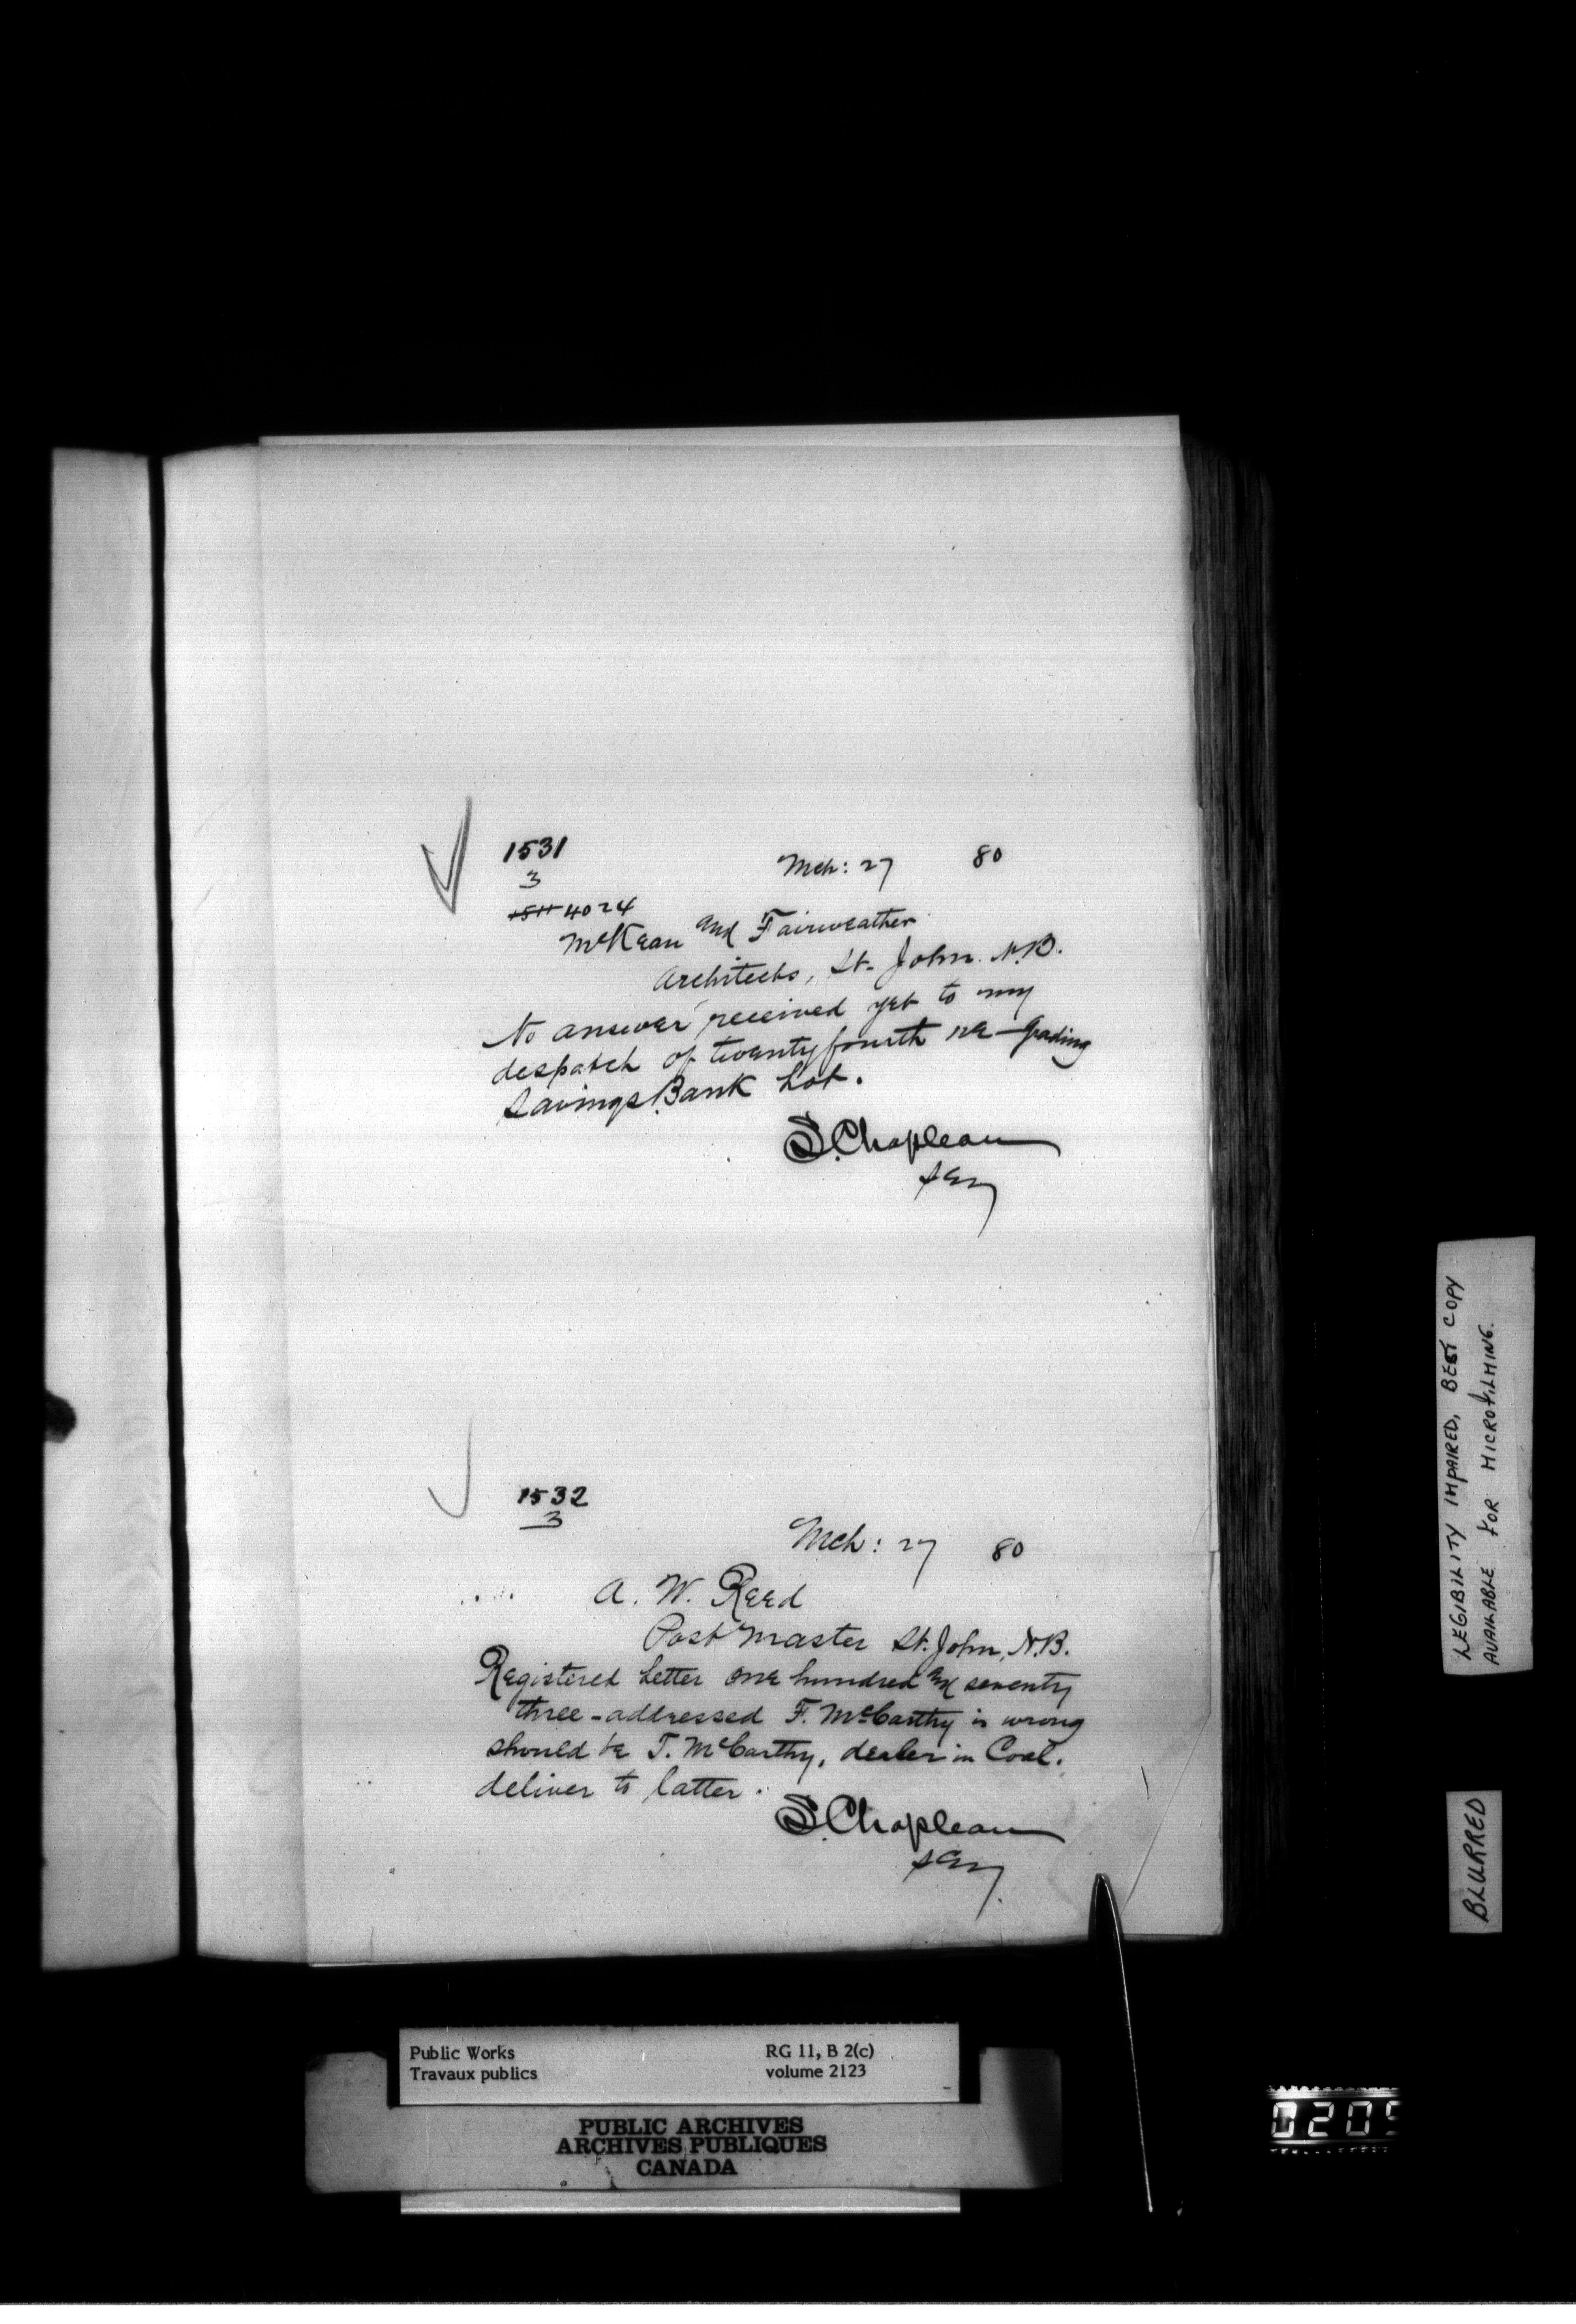 1531
3
Mch: 27 80
1511 4024
McKean and Fairweather
Architects, St. John. N.B.
No answer received yet to my
despatch of twentyfourth re-grading
Savings Bank Lot.
S. Chapleau
Secy
1532
3
Mch: 27 80
A. W. Reed
Post Master St. John, N.B.
Registered Letter one hundred and seventy
three - addressed F. McCarthy is wrong
should be T. McCarthy, dealer in Coal.
deliver to latter.
S. Chapleau
Secy.
LEGIBILITY IMPAIRED, BEST COPY
AVAILABLE FOR MICROFILMING.
BLURRED
Public Works RG 11, B 2(c)
Travaux publics volume 2123
PUBLIC ARCHIVES
ARCHIVES PUBLIQUES
CANADA
0205